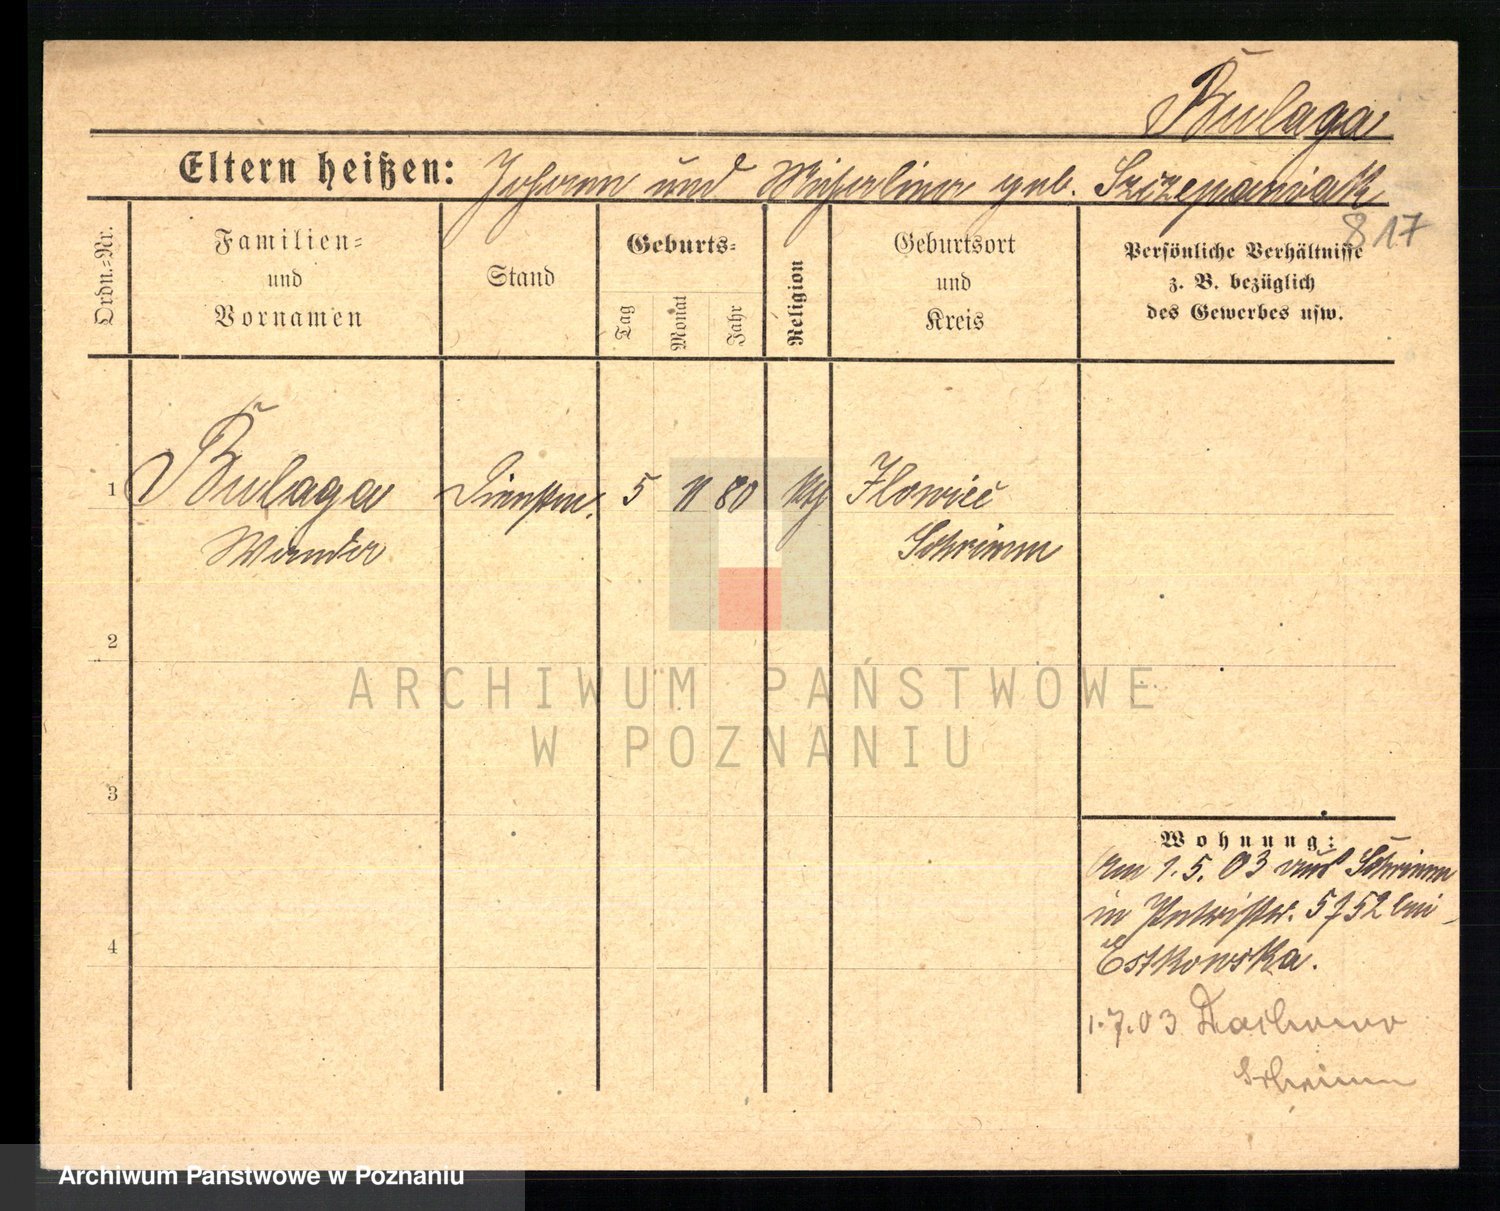 Bulaga
Eltern heißen: Johann und Michalina geb. Szczepaniak
817
Ordn.-Nr.
Familien- und Vornamen
Stand
Geburts-
Tag
Monat
Jahr
Religion
Geburtsort und Kreis
Persönliche Verhältnisse
z. B. bezüglich
des Gewerbes usw.
1 Bulaga Dienstm. 5 11 80 kth Ilowiec
Wanda Schrimm
2
3
4
Wohnung:
Am 1.5.03 aus Schrimm
in 5752 bei
Estkowska.
1.7.03
Schrimm
ARCHIWUM PAŃSTWOWE
W POZNANIU
Archiwum Państwowe w Poznaniu